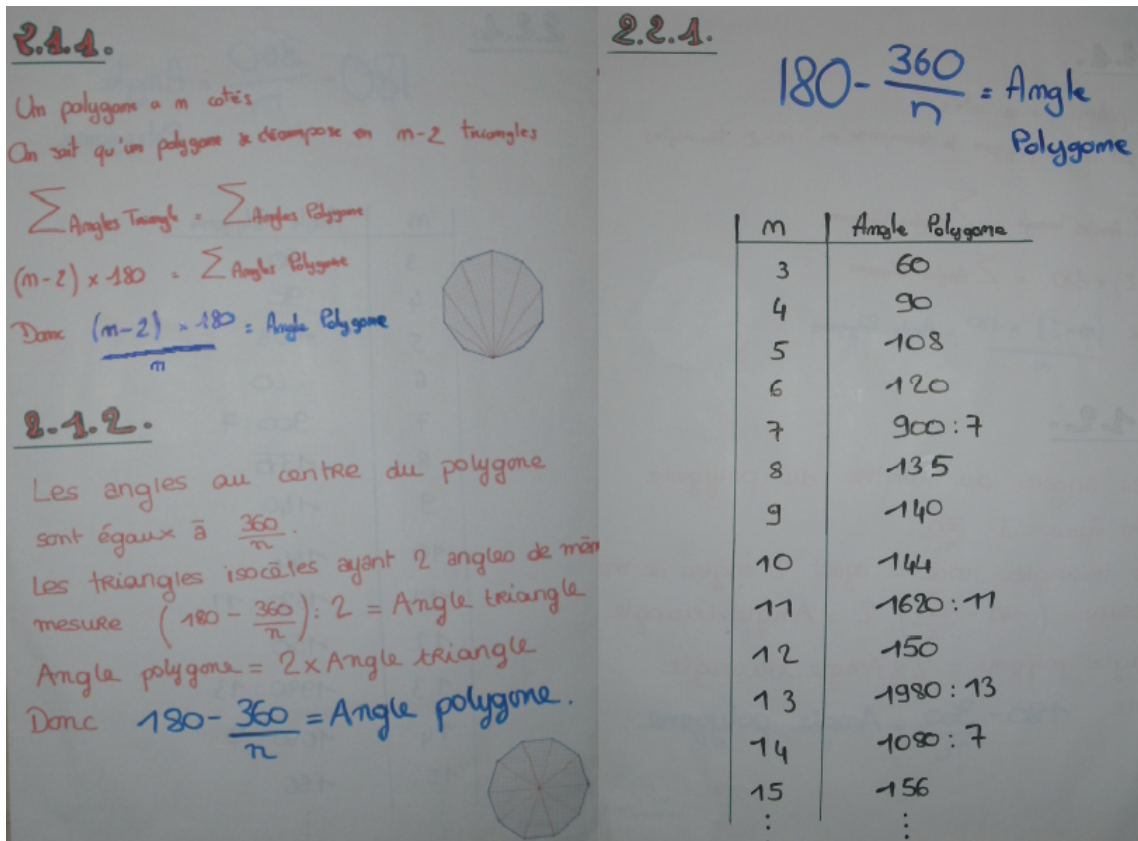 2.1.1.
Un polygone a n cotés
On sait qu'un polygone se décompose en n-2 triangles
∑ Angles Triangle = ∑ Angles Polygone
(n-2) x 180 = ∑ Angles Polygone
Donc (n-2) x 180 / n = Angle Polygone
2.1.2.
Les angles au centre du polygone
sont égaux à 360/n.
Les triangles isocèles ayant 2 angles de mêm
mesure (180 - 360/n) : 2 = Angle triangle
Angle polygone = 2 x Angle triangle
Donc 180 - 360/n = Angle polygone.
2.2.1.
180 - 360/n = Angle
Polygone
n Angle Polygone
3 60
4 90
5 108
6 120
7 900 : 7
8 135
9 140
10 144
11 1620 : 11
12 150
13 1980 : 13
14 1080 : 7
15 156
⋮ ⋮